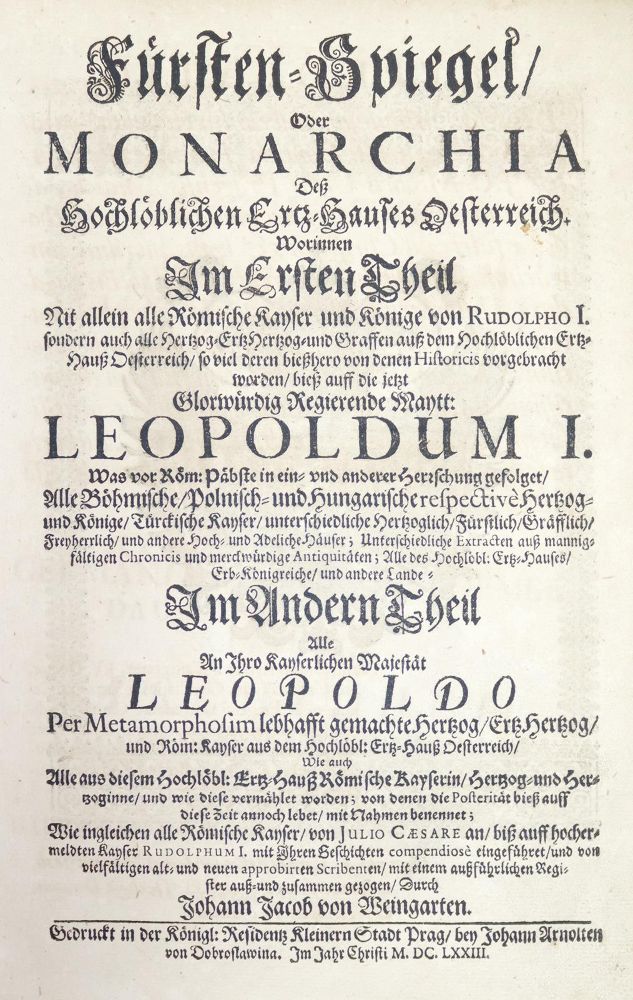 Fürsten-Spiegel/
Oder
MONARCHIA
Deß
Hochlöblichen Ertz-Hauses Oesterreich.
Worinnen
Im Ersten Theil
Nit allein alle Römische Kayser und Könige von RUDOLPHO I.
sondern auch alle Hertzog-ErtzHertzog-und Graffen auß dem Hochlöblichen Ertz-
Hauß Oesterreich/ so viel deren bießhero von denen Historicis vorgebracht
worden/ bieß auff die jetzt
Glorwürdig Regierende Maytt:
LEOPOLDUM I.
Was vor Röm: Päbste in ein- vnd anderer Herrschung gefolget/
Alle Böhmische/Polnisch- und Hungarische respectivè Hertzog-
und Könige/ Türckische Kayser/ unterschiedliche Hertzoglich/Fürstlich/Gräfflich/
Freyherrlich/ und andere Hoch- und Adeliche-Häuser; Unterschiedliche Extracten auß mannig-
fältigen Chronicis und merckwürdige Antiquitäten; Alle des Hochlöbl: Ertz-Hauses/
Erb-Königreiche/ und andere Lande-
Im Andern Theil
Alle
An Ihro Kayserlichen Majestät
LEOPOLDO
Per Metamorphosim lebhafft gemachte Hertzog/ErtzHertzog/
und Röm: Kayser aus dem Hochlöbl: Ertz-Hauß Oesterreich/
Wie auch
Alle aus diesem Hochlöbl: Ertz-Hauß Römische Kayserin/ Hertzog-und Her-
tzoginne/ und wie diese vermählet worden; von denen die Posterität bieß auff
diese Zeit annoch lebet/ mit Nahmen benennet;
Wie ingleichen alle Römische Kayser/ von JULIO CÆSARE an/ biß auff hocher-
meldten Kayser RUDOLPHUM I. mit Ihren Geschichten compendiosè eingeführet/und von
vielfältigen alt- und neuen approbirten Scribenten/ mit einem außführlichen Regi-
ster auß-und zusammen gezogen/ Durch
Johann Jacob von Weingarten.
Gedruckt in der Königl: Residentz Kleinern Stadt Prag/ bey Johann Arnolten
von Dobroslawina. Im Jahr Christi M. DC. LXXIII.